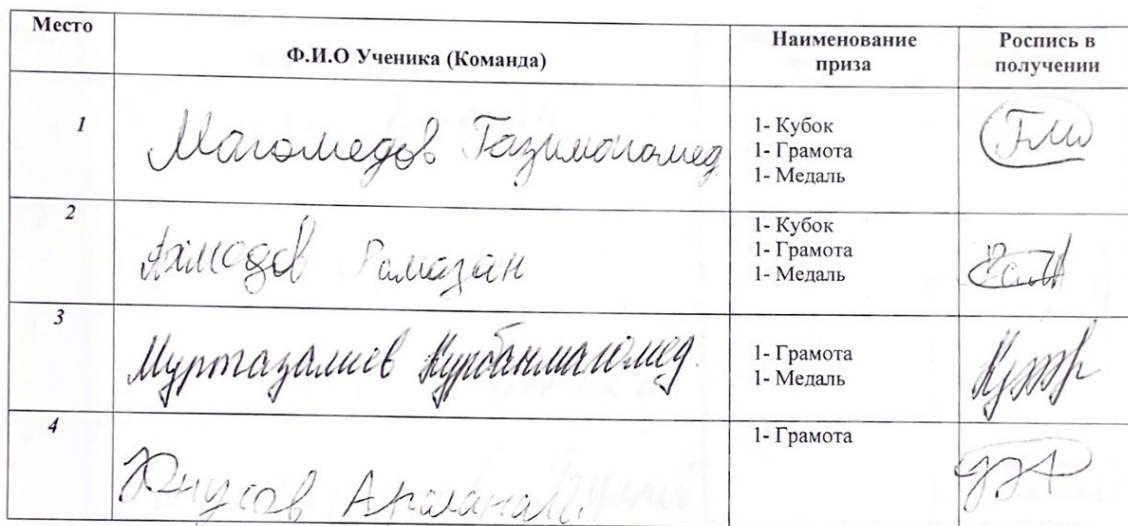 Место
Ф.И.О Ученика (Команда)
Наименование приза
Роспись в получении
1
Магомедов Газимагомед
1- Кубок
1- Грамота
1- Медаль
2
Ахмедов Рамазан
1- Кубок
1- Грамота
1- Медаль
3
Муртазалиев Курбанмагомед.
1- Грамота
1- Медаль
4
Юнусов
1- Грамота